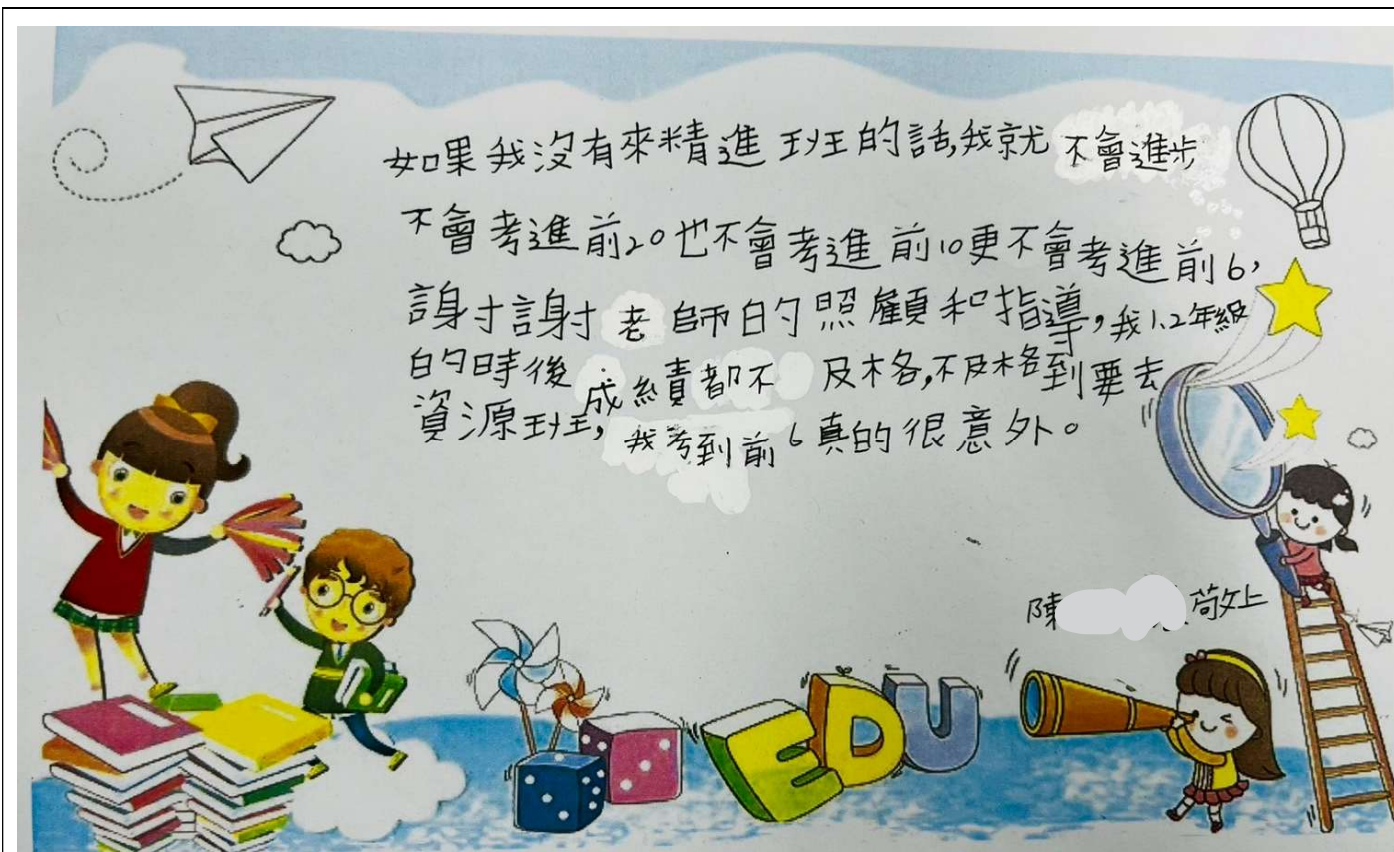 如果我沒有來精進班的話,我就不會進步
不會考進前20也不會考進前10更不會考進前6,
謝謝老師的照顧和指導,我1.2年級
的時後成績都不及格,不及格到要去
資源班,我考到前6真的很意外。
陳 敬上
EDU